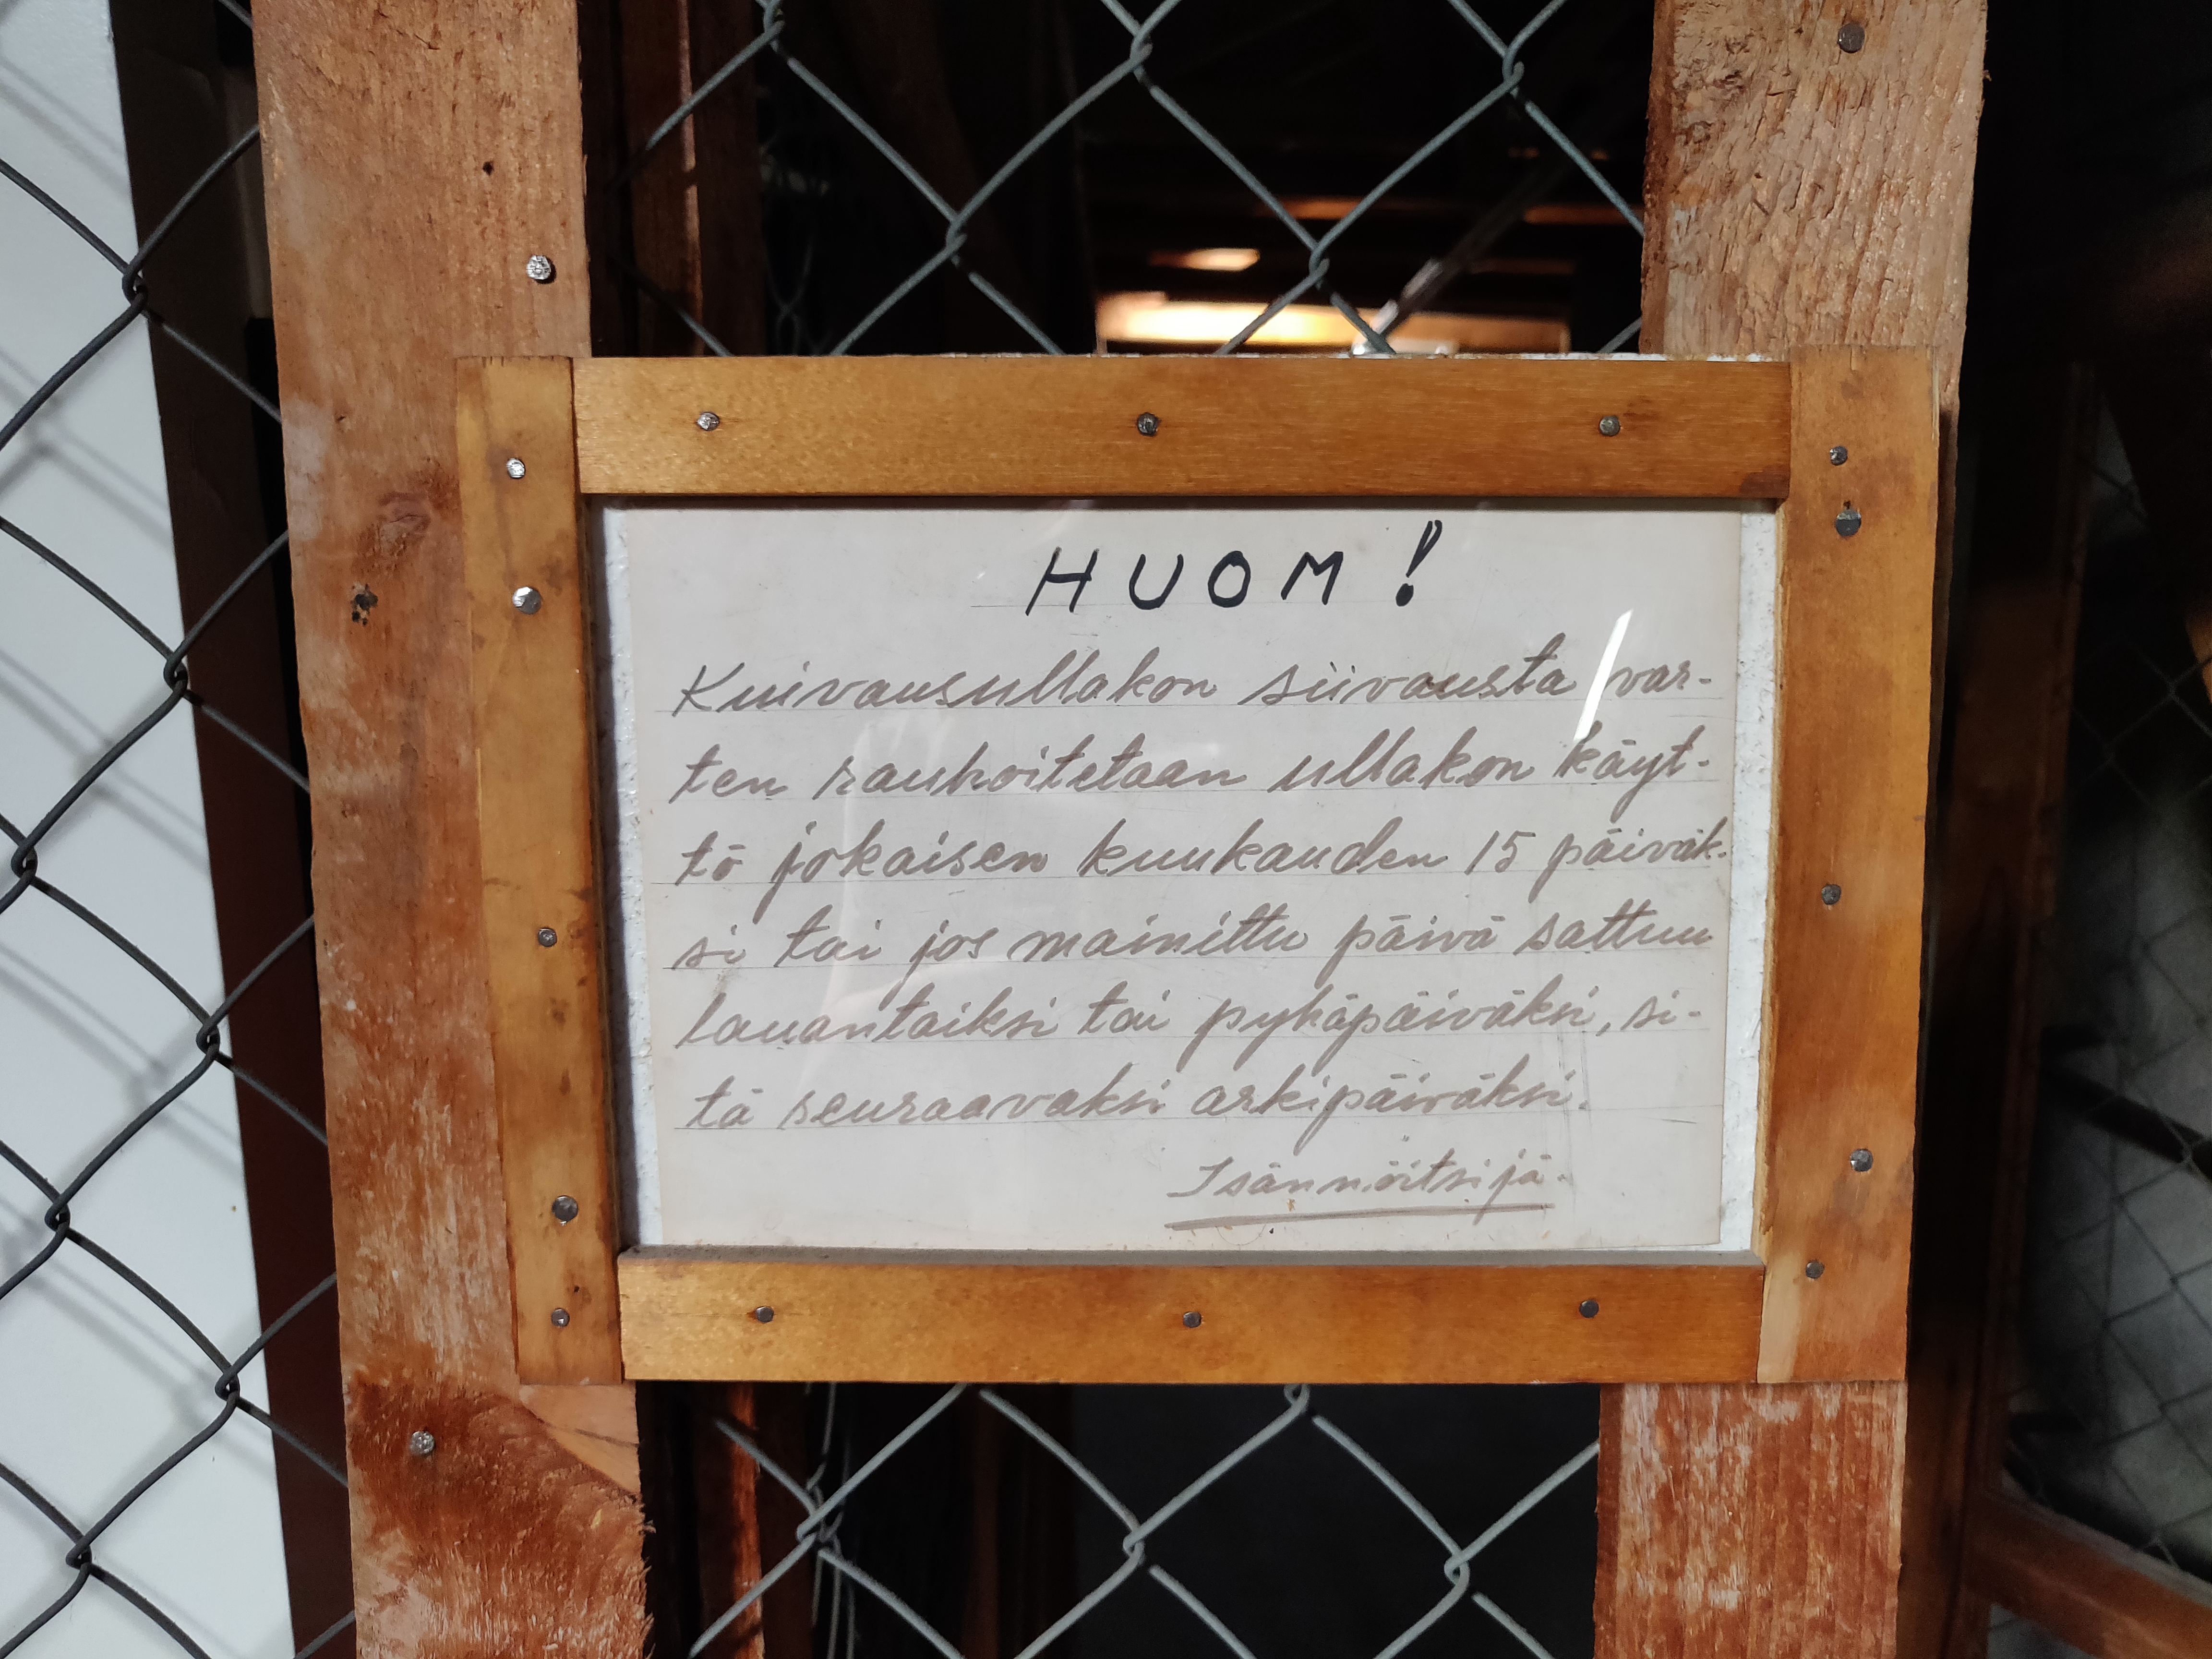 HUOM!
Kuivausullakon siivousta var-
ten rauhoitetaan ullakon käyt-
tö jokaisen kuukauden 15 päiväk-
si tai jos mainittu päivä sattuu
lauantaiksi tai pyhäpäiväksi, si-
tä seuraavaksi arkipäiväksi.
Isännöitsijä.